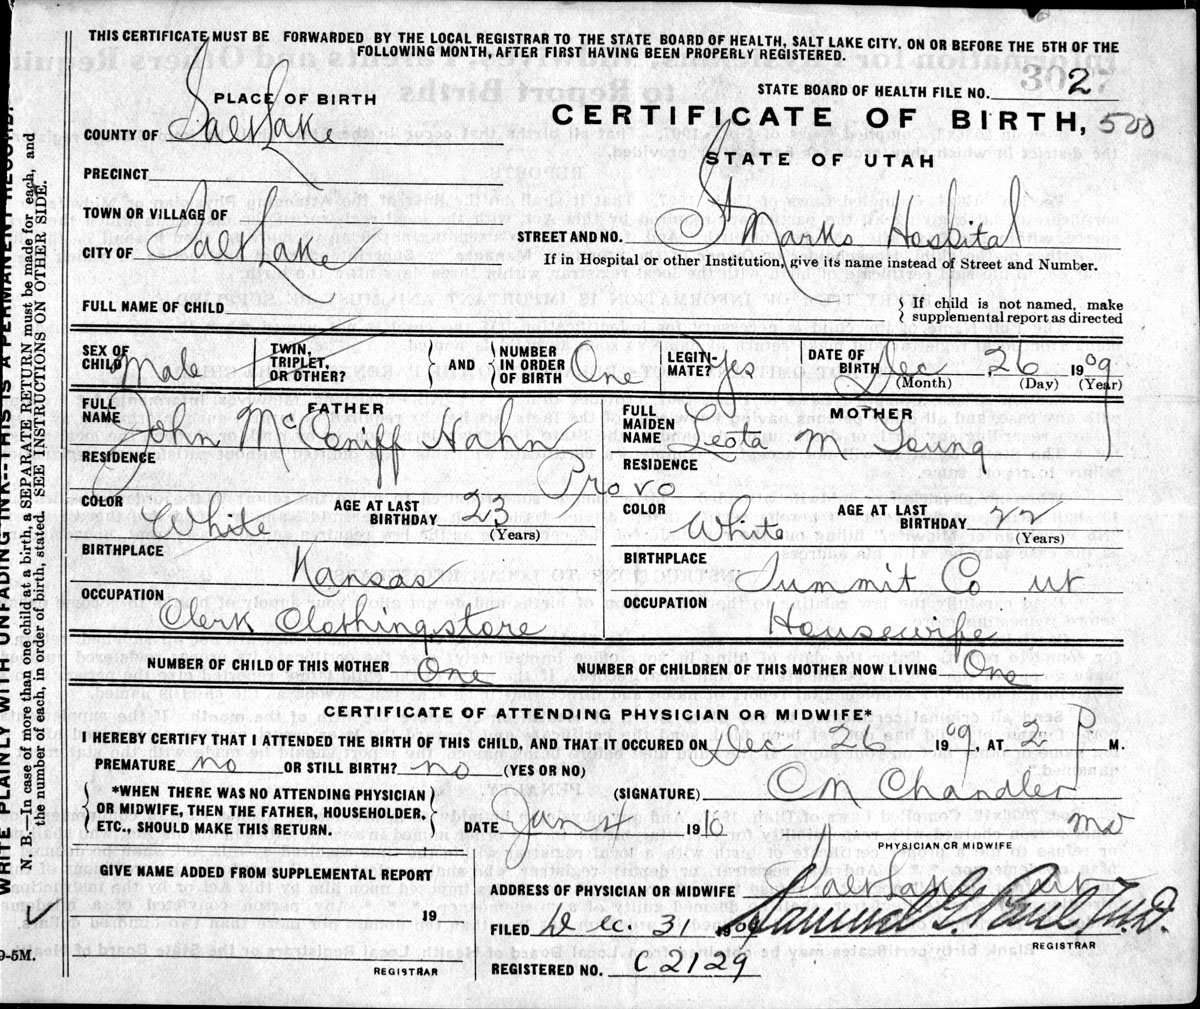 THIS CERTIFICATE MUST BE FORWARDED BY THE LOCAL REGISTRAR TO THE STATE BOARD OF HEALTH, SALT LAKE CITY, ON OR BEFORE THE 5TH OF THE
FOLLOWING MONTH, AFTER FIRST HAVING BEEN PROPERLY REGISTERED.
PLACE OF BIRTH
STATE BOARD OF HEALTH FILE NO. 2
CERTIFICATE OF BIRTH, 500
STATE OF UTAH
COUNTY OF Salt Lake
PRECINCT
TOWN OR VILLAGE OF
CITY OF Salt Lake
STREET AND NO. St Marks Hospital
If in Hospital or other Institution, give its name instead of Street and Number.
FULL NAME OF CHILD
If child is not named, make
supplemental report as directed
SEX OF CHILD Male
TWIN, TRIPLET, OR OTHER?
AND
NUMBER IN ORDER OF BIRTH One
LEGITI-MATE? Yes
DATE OF BIRTH Dec 26 1909
(Month) (Day) (Year)
FATHER
FULL NAME John McConiff Hahn
MOTHER
FULL MAIDEN NAME Leota M Young
RESIDENCE
Provo
RESIDENCE
COLOR White
AGE AT LAST BIRTHDAY 23
(Years)
COLOR White
AGE AT LAST BIRTHDAY 22
(Years)
BIRTHPLACE Kansas
BIRTHPLACE Summit Co ut
OCCUPATION
Clerk Clothingstore
OCCUPATION
Housewife
NUMBER OF CHILD OF THIS MOTHER One
NUMBER OF CHILDREN OF THIS MOTHER NOW LIVING One
CERTIFICATE OF ATTENDING PHYSICIAN OR MIDWIFE*
I HEREBY CERTIFY THAT I ATTENDED THE BIRTH OF THIS CHILD, AND THAT IT OCCURED ON Dec 26 1909, AT 2 P M.
PREMATURE no OR STILL BIRTH? no (YES OR NO)
*WHEN THERE WAS NO ATTENDING PHYSICIAN
OR MIDWIFE, THEN THE FATHER, HOUSEHOLDER,
ETC., SHOULD MAKE THIS RETURN.
(SIGNATURE) CM Chandler
DATE Jan 4 1910
MD
PHYSICIAN OR MIDWIFE
GIVE NAME ADDED FROM SUPPLEMENTAL REPORT
19
REGISTRAR
ADDRESS OF PHYSICIAN OR MIDWIFE Salt Lake City
FILED Dec. 31 1909
Samuel G. Paul M.D.
REGISTRAR
REGISTERED NO. C2129
WRITE PLAINLY WITH UNFADING INK--THIS IS A PERMANENT RECORD.
N. B.—In case of more than one child at a birth, a SEPARATE RETURN must be made for each, and
the number of each, in order of birth, stated. SEE INSTRUCTIONS ON OTHER SIDE.
9-5M.